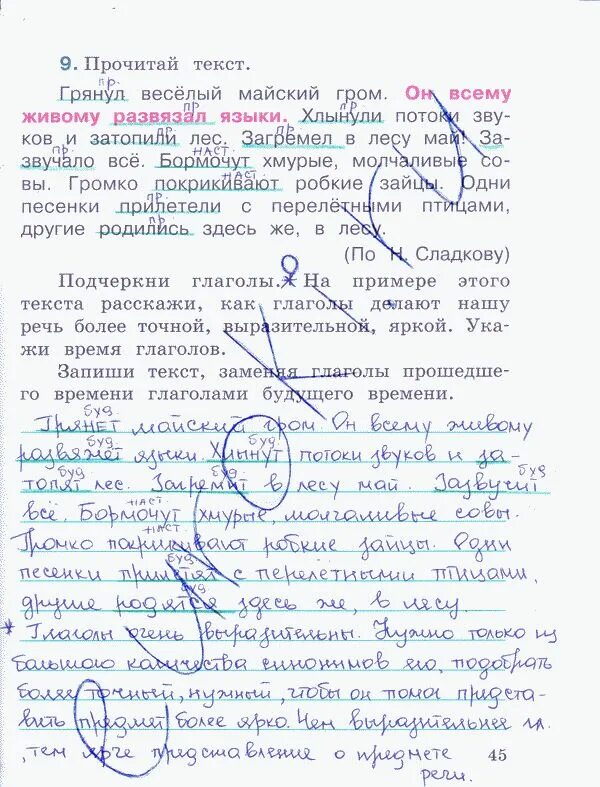 9. Прочитай текст.
пр.
Грянул весёлый майский гром. Он всему
пр.
пр.
живому развязал языки. Хлынули потоки зву-
пр.
пр.
ков и затопили лес. Загремел в лесу май! За-
пр.
наст.
звучало всё. Бормочут хмурые, молчаливые со-
наст.
вы. Громко покрикивают робкие зайцы. Одни
пр.
песенки прилетели с перелётными птицами,
пр.
другие родились здесь же, в лесу.
(По Н. Сладкову)
Подчеркни глаголы.* На примере этого
текста расскажи, как глаголы делают нашу
речь более точной, выразительной, яркой. Ука-
жи время глаголов.
Запиши текст, заменяя глаголы прошедше-
го времени глаголами будущего времени.
буд.
Грянет майский гром. Он всему живому
буд.
буд.
развяжет языки. Хлынут потоки звуков и за-
буд.
буд.
буд
топят лес. Загремит в лесу май. Зазвучит
наст.
всё. Бормочут хмурые, молчаливые совы.
наст.
Громко покрикивают робкие зайцы. Одни
буд
песенки прилетят с перелётными птицами,
буд
другие родятся здесь же, в лесу.
* Глаголы очень выразительны. Нужно только из
большого количества синонимов его, подобрать
более точный, нужный, чтобы он помог предста-
вить предмет более ярко. Чем выразительнее гл.
, тем ярче представление о предмете
речи.
45